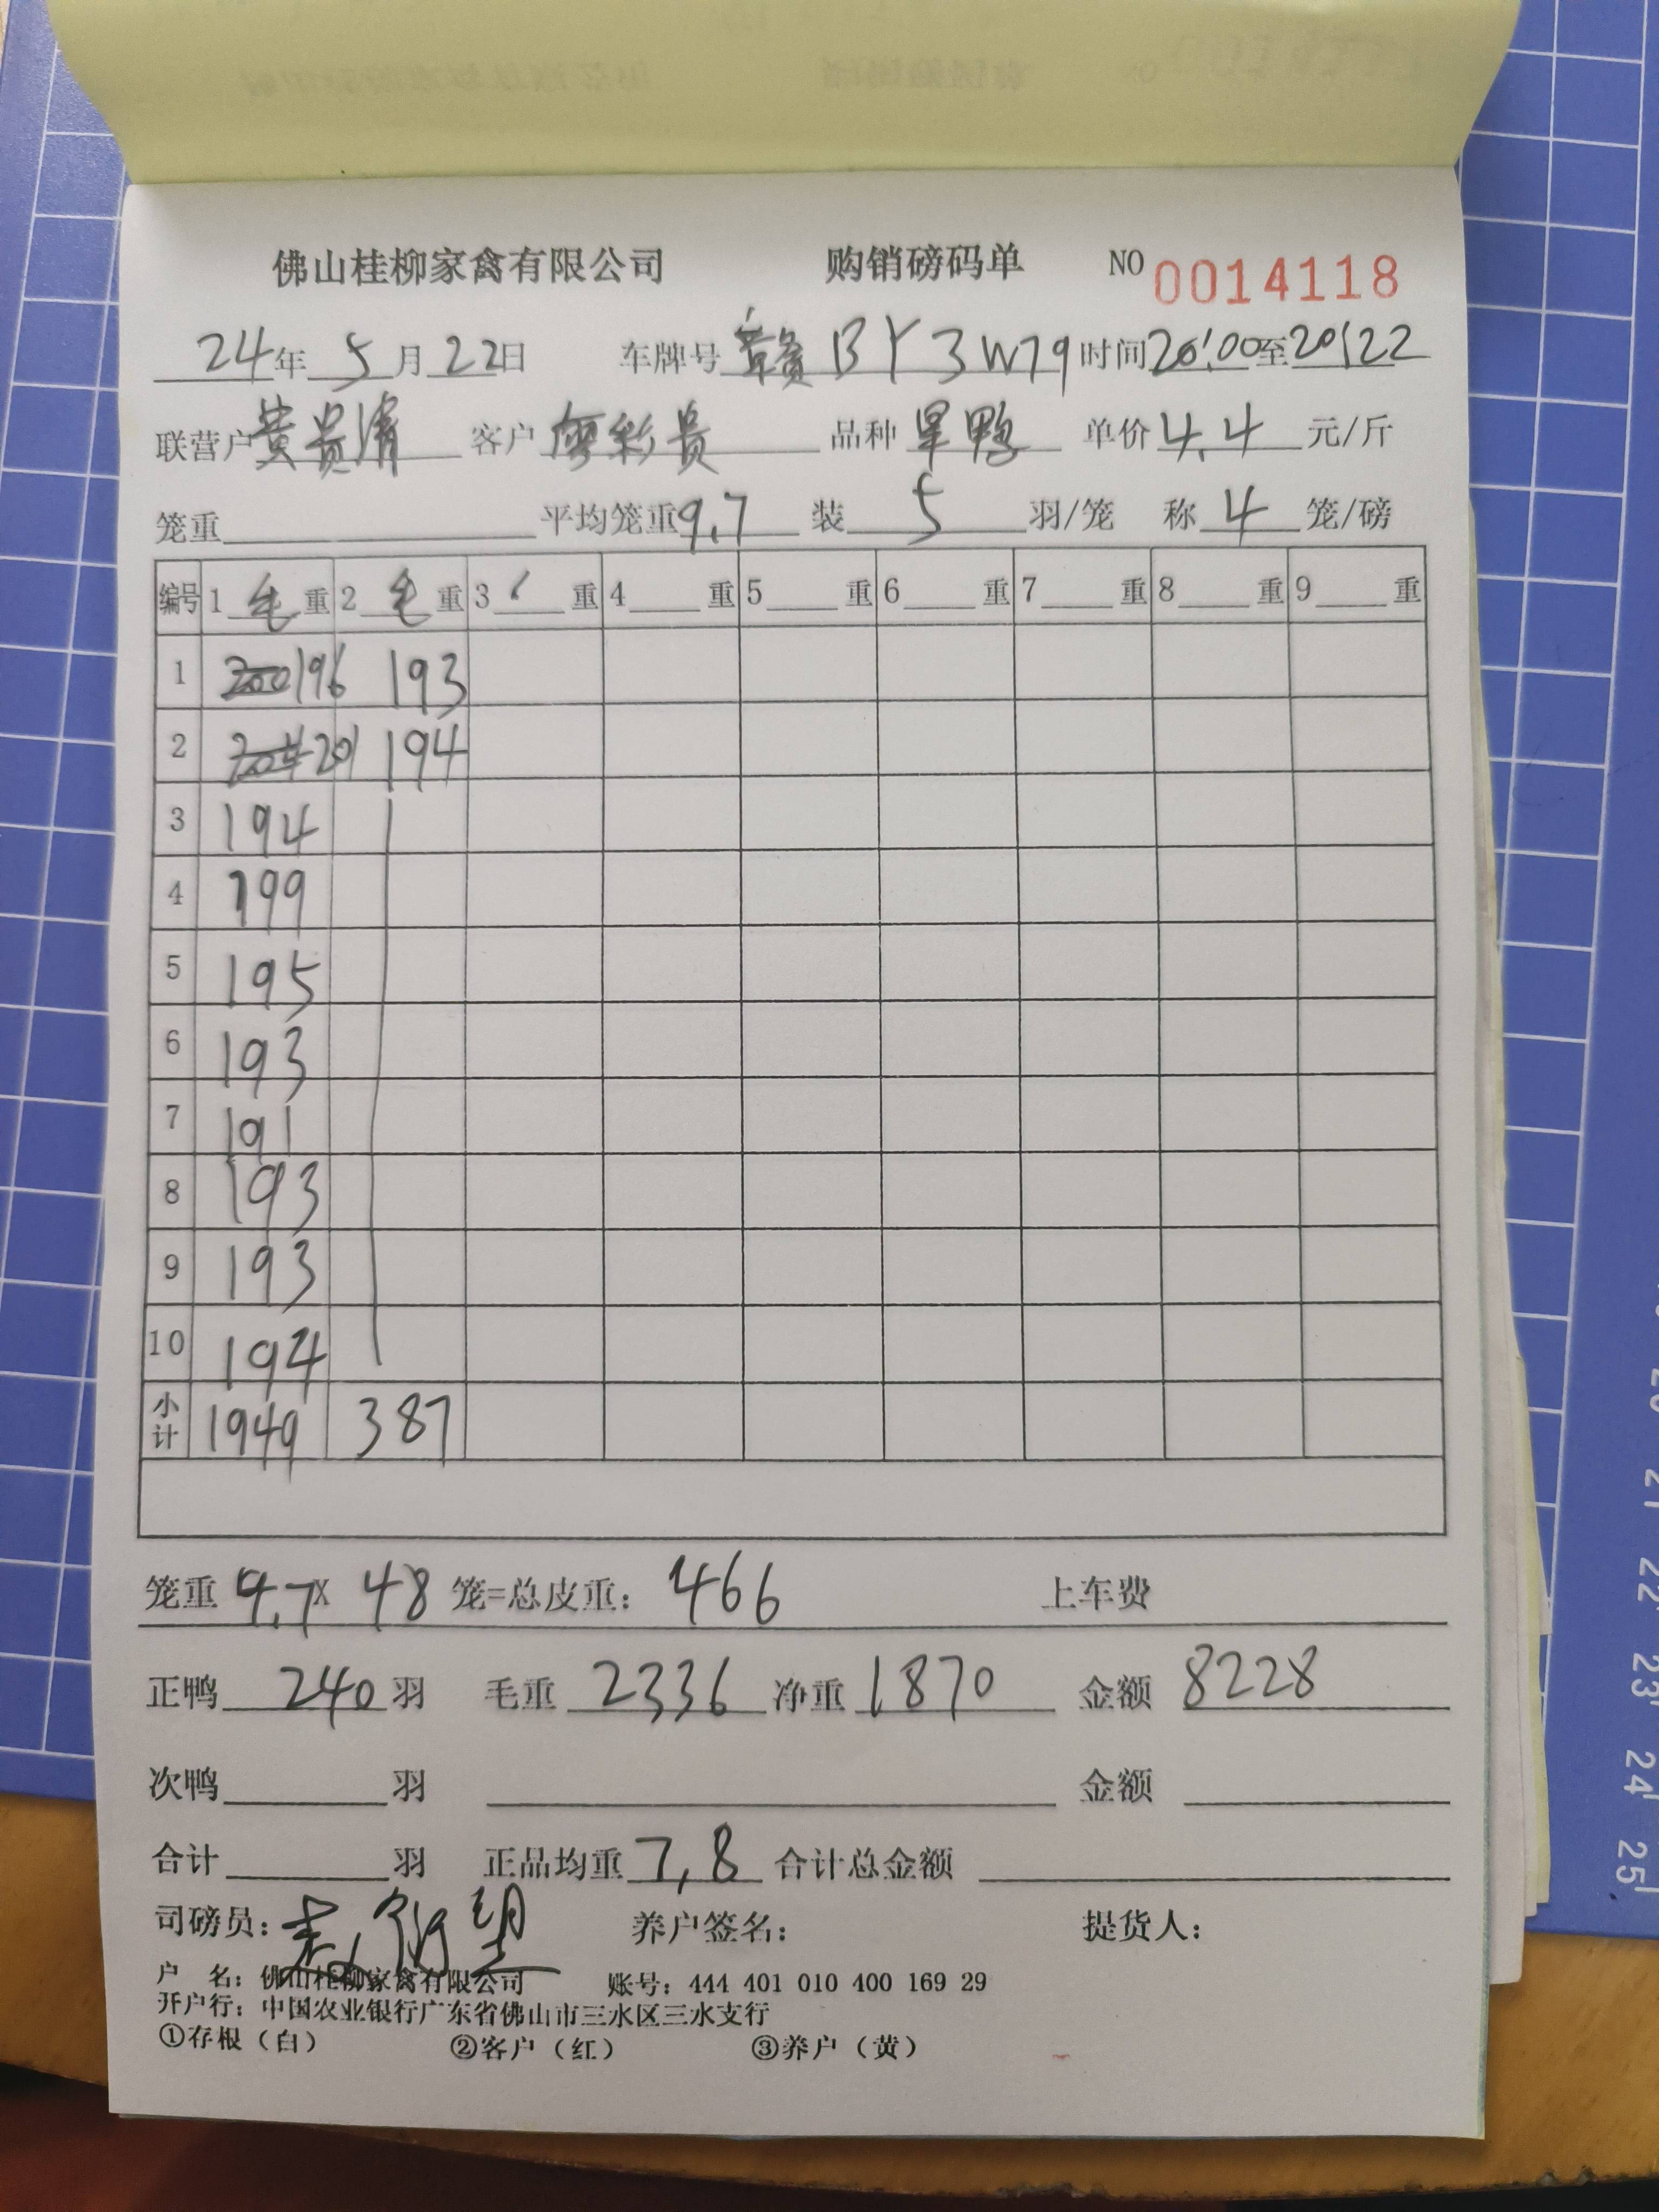 佛山桂柳家禽有限公司 购销磅码单 NO 0014118
24年 5月 22日 车牌号 赣BY3W79 时间20:00至20:22
联营户 黄贵清 客户 廖彩贵 品种 旱鸭 单价 4.4 元/斤
笼重 平均笼重 9.7 装 5 羽/笼 称 4 笼/磅
编号 1 毛 重 2 毛 重 3 重 4 重 5 重 6 重 7 重 8 重 9 重
1 200 196 193
2 204 201 194
3 194
4 199
5 195
6 193
7 191
8 193
9 193
10 194
小计 1949 387
笼重 9.7 X 48 笼=总皮重: 466 上车费
正鸭 240 羽 毛重 2336 净重 1870 金额 8228
次鸭 羽 金额
合计 羽 正品均重 7.8 合计总金额
司磅员: 养户签名: 提货人:
户 名: 佛山桂柳家禽有限公司 账号: 444 401 010 400 169 29
开户行: 中国农业银行广东省佛山市三水区三水支行
①存根（白） ②客户（红） ③养户（黄）
20
21
22
23
24
25